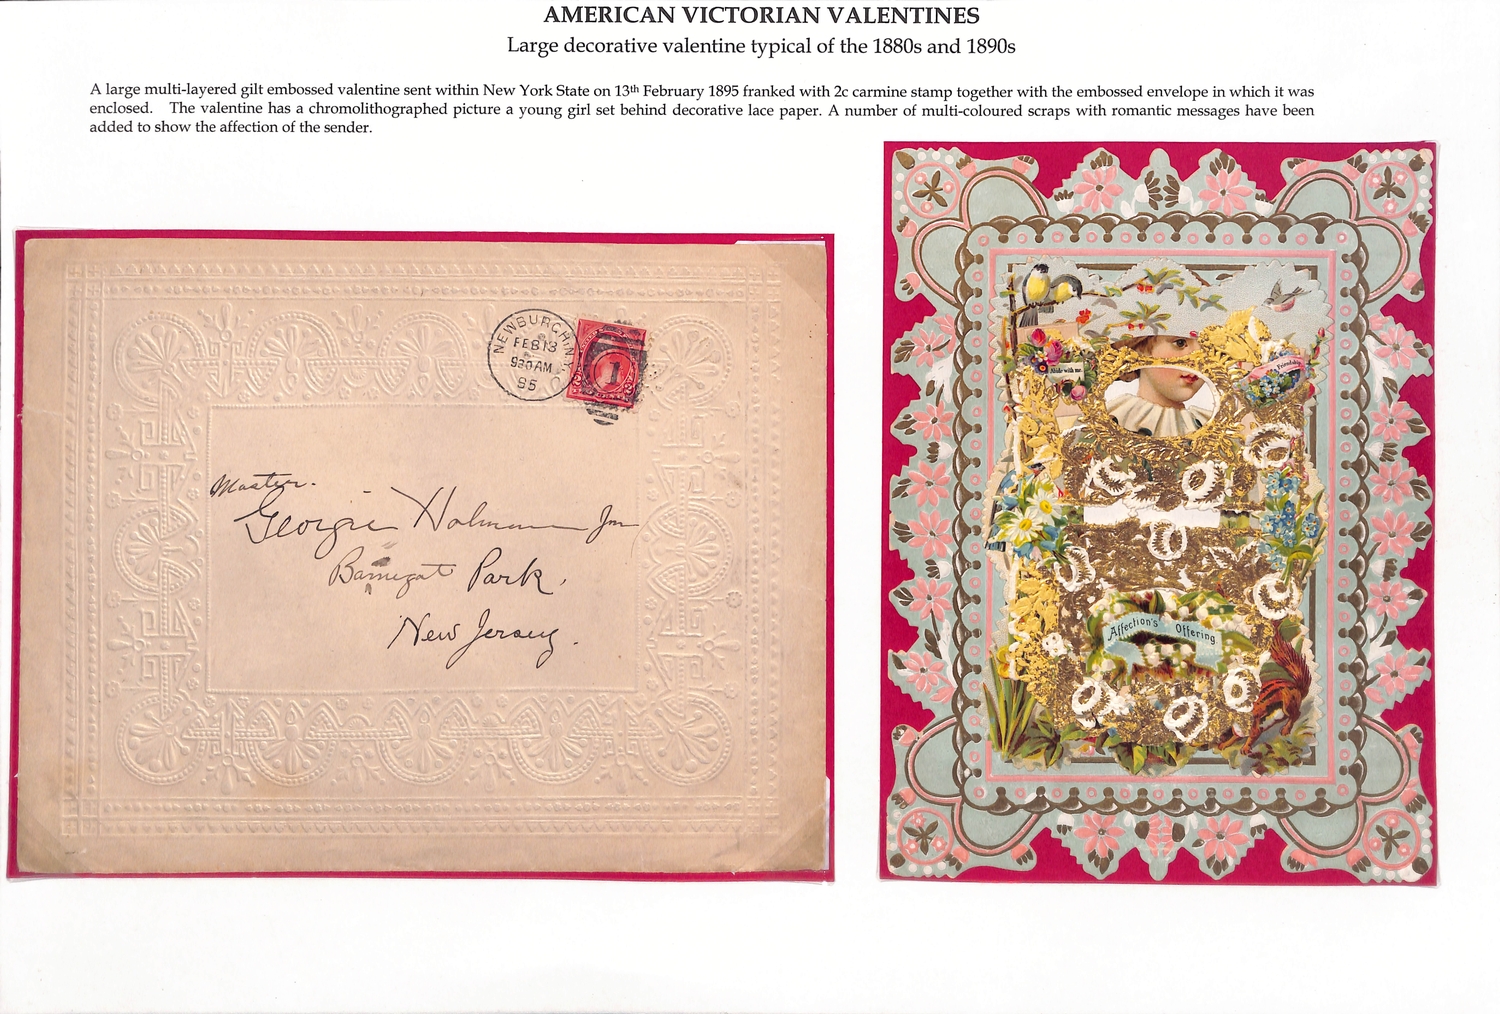 AMERICAN VICTORIAN VALENTINES
Large decorative valentine typical of the 1880s and 1890s
A large multi-layered gilt embossed valentine sent within New York State on 13th February 1895 franked with 2c carmine stamp together with the embossed envelope in which it was
enclosed. The valentine has a chromolithographed picture a young girl set behind decorative lace paper. A number of multi-coloured scraps with romantic messages have been
added to show the affection of the sender.
NEWBURGH, N.Y.
FEB 13
930AM
95
1
Master.
Georgie Holman Jnr
Barnegat Park.
New Jersey.
Abide with me.
Friendship
Affection's Offering